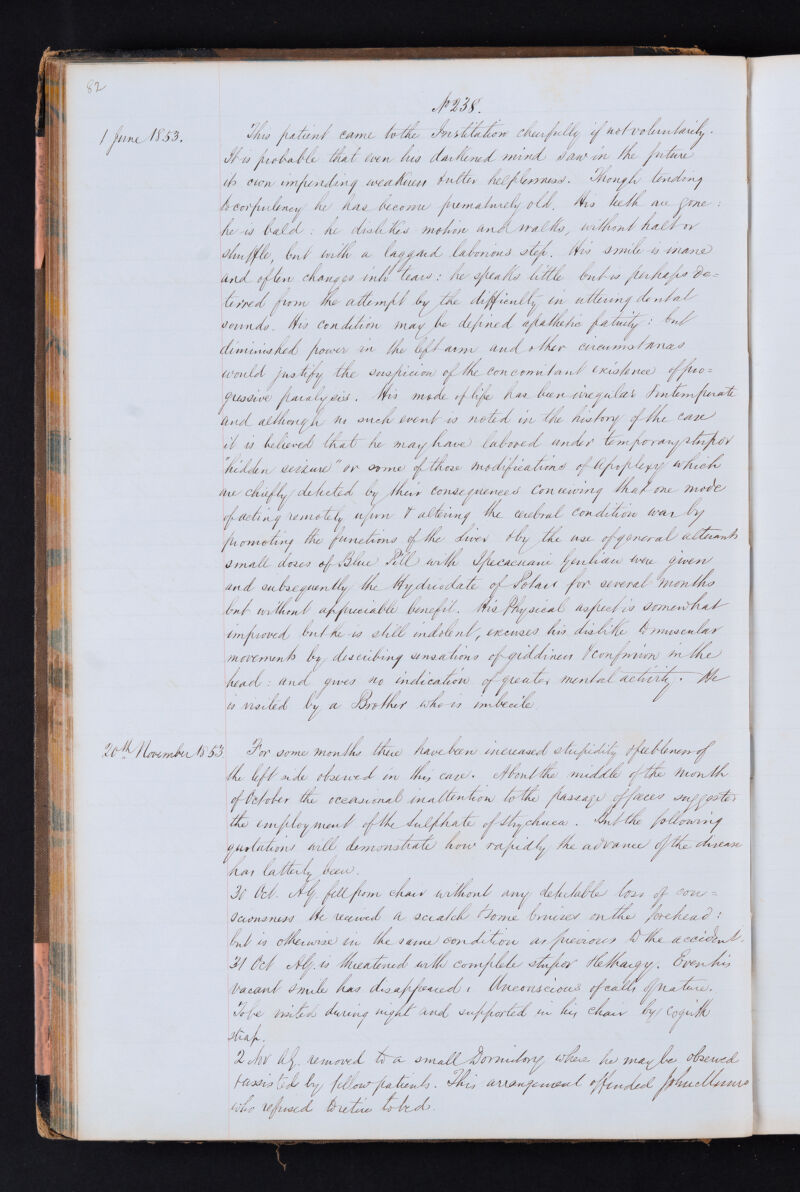 82
No 238.
1 June 1853. This patient came to the Institution cheerfully if not voluntarily.
It is probable that even his darkened mind saw in the future
its own impending weakness & utter helplessness. Though tending
to corpulency he has become prematurely old. His teeth are gone:
he is bald: he dislikes motion and walks, without halt or
shuffle, but with a laggard laborious step. His smile is inane
and often changes into tears: he speaks little but is perhaps de=
terred from the attempt by the difficulty in uttering dental
sounds. His condition may be defined apathetic fatuity: but
diminished power in the left arm and other circumstances
would justify the suspicion of the concomitant existence of pro=
gressive paralysis. His mode of life has been irregular & intemperate
and although no such event is noted in the history of the case
it is believed that he may have labored under temporary stupor
"hidden seizure" or some of those modifications of apoplexy which
are chiefly detected by their consequences conceiving that one mode
of acting remotely upon & altering the cerebral condition was by
promoting the functions of the liver & by the use of general alterants
small doses of Blue Pill with Ipecacuani Gentian were given
and subsequently the Hydriodate of Potass for several months
but without appreciable benefit. His Physical aspect is somewhat
improved but he is still indolent, excuses his dislike to muscular
movements by describing sensations of giddiness & confusion in the
head: and gives no indication of greater mental activity. He
is visited by a Brother who is imbecile.
20th November 1853 For some months there have been increased stupidity & feebleness of
the left side observed in this case. About the middle of the month
of October the occasional inattention to the passage of faeces suggested
the employment of the Sulphate of Strychnea. But the following
quotations will demonstrate how rapidly the advance of the disease
has latterly been.
30 Oct. A.G. fell from chair without any detectable loss of con=
sciousness He received a scratch & some bruises on the forehead:
but is otherwise in the same condition as previous to the accident.
31 Oct A.G. is threatened with complete stupor & lethargy. Even his
vacant smile has disappeared: Unconscious of calls of nature.
To be visited during night and supported in his chair by
strap.
2 Nov A.G. removed to a small Dormitory where he may be observed
& assisted by fellow patients. This arrangement offended John Munro
who refused to retire to bed.